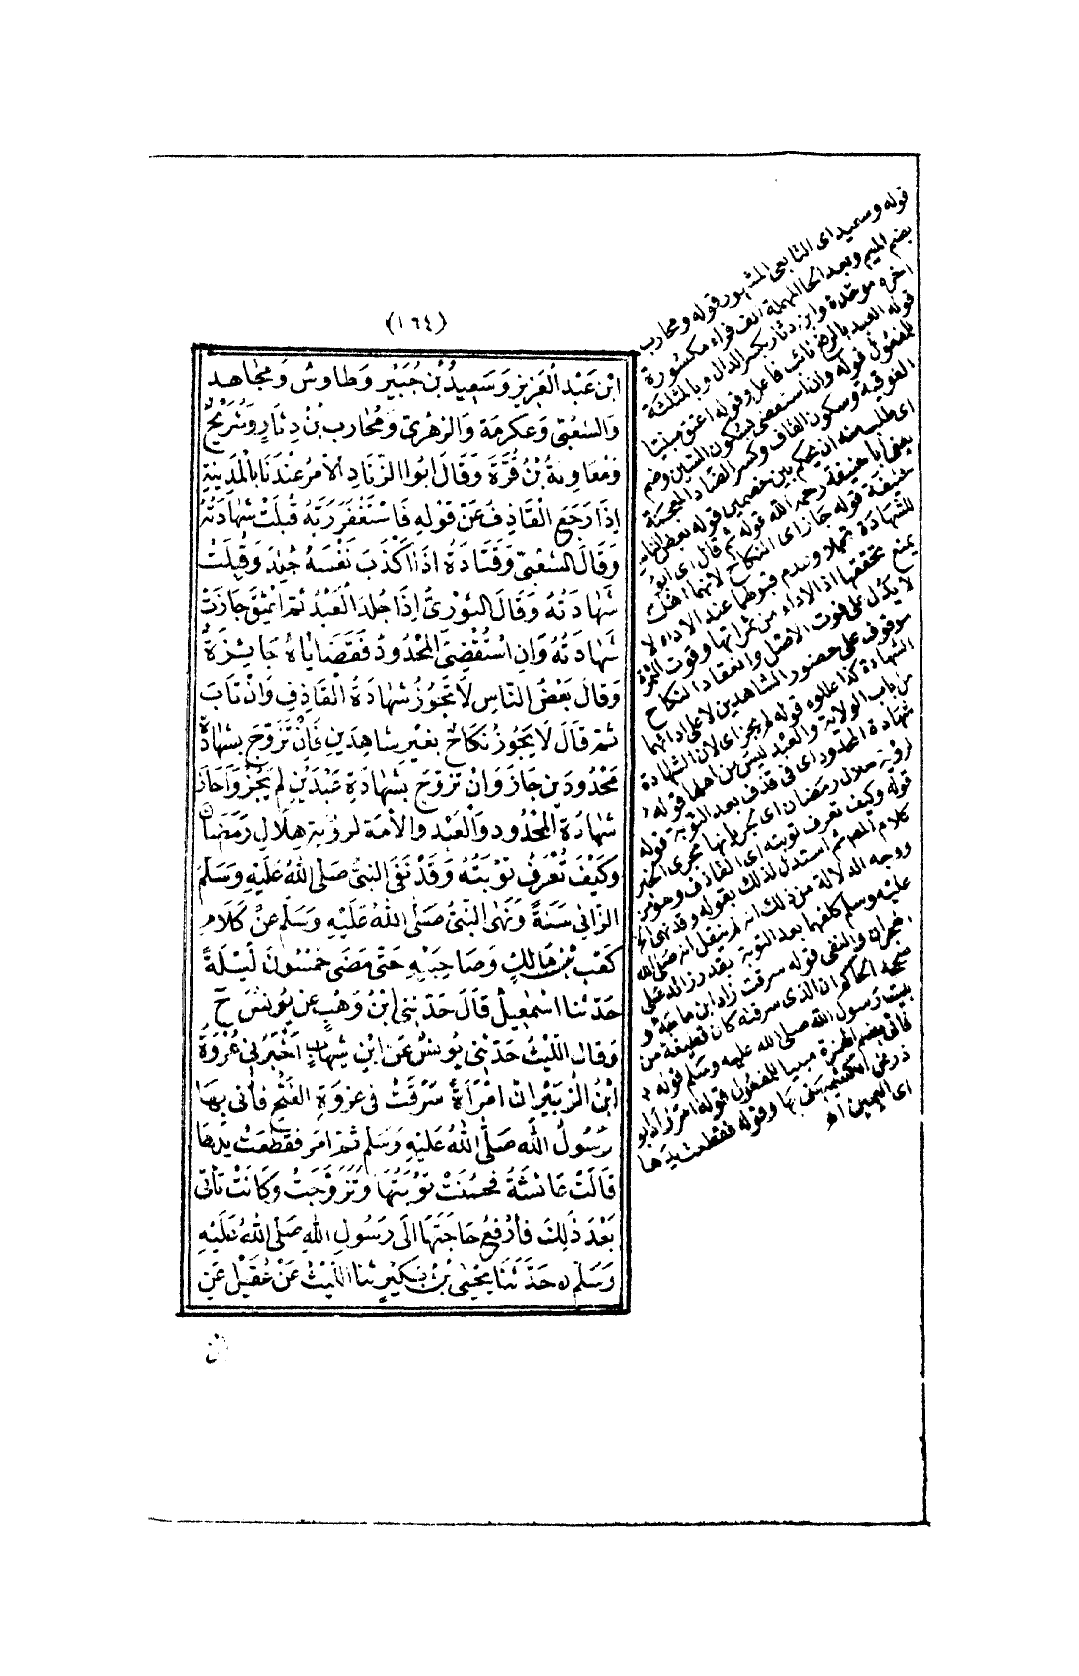 (١٦٤)
ابْن عَبْد الْعَزِيزِ وَسَعِيدُ بْن جُبَيْرٍ وَطَاوُسٌ وَمُجَاهِد
وَالشَّعْبِيُّ وَعِكْرِمَة وَالزُّهْرِيُّ وَمُحَارِب بْنُ دِثَارٍ وَشُرَيْحٌ
وَمُعَاوِيَةُ بْنُ قُرَّةَ وَقَالَ أَبُو الزِّنَادِ الْأَمْرُ عِنْدَنَا بِالْمَدِينَةِ
إِذَا رَجَعَ الْقَاذِفُ عَنْ قَوْلِهِ فَاسْتَغْفَرَ رَبَّهُ قُبِلَتْ شَهَادَتُهُ
وَقَالَ الشَّعْبِيُّ وَقَتَادَةُ اذَا أَكْذَبَ نَفْسَهُ جُلِدَ وَقُبِلَتْ
شَهَادَتُهُ وَقَالَ الثَّوْرِيُّ إِذَا جُلِدَ الْعَبْدُ ثُمَّ أُعْتِقَ جَازَتْ
شَهَادَتُهُ وَانِ اسْتُقْضِيَ الْمَحْدُودُ فَقَضَايَاهُ جَائِزَةٌ
وَقَالَ بَعْضُ النَّاسِ لَا تَجُوزُ شَهَادَةُ الْقَاذِفِ وَانْ تَابَ
ثُمَّ قَالَ لَا يَجُوزُ نِكَاحٌ بِغَيْرِ شَاهِدَيْنِ فَإِنْ تَزَوَّجَ بِشَهَادَةِ
مَحْدُودَيْنِ جَازَ وَانْ تَزَوَّجَ بِشَهَادَةِ عَبْدَيْنِ لَمْ يَجُزْ وَاَجَازَ
شَهَادَةَ الْمَحْدُودِ وَالْعَبْدِ وَالْأَمَةِ لِرُؤْيَةِ هِلَالِ رَمَضَانَ
وَكَيْفَ تُعْرَفُ تَوْبَتُهُ وَقَدْ نَفَى النَّبِيُّ صَلَّى اللهُ عَلَيْهِ وَسَلَّمَ
الزَّانِيَ سَنَةً وَنَهَى النَّبِيُّ صَلَّى اللهُ عَلَيْهِ وَسَلَّمَ عَنْ كَلَامِ
كَعْبِ بْنِ مَالِكٍ وَصَاحِبَيْهِ حَتَّى مَضَى خَمْسُونَ لَيْلَةً
حَدَّثَنَا اسْمٰعِيلُ قَالَ حَدَّثَنِي ابْنُ وَهْبٍ عَنْ يُونُسَ ح
وَقَالَ اللَّيْثُ حَدَّثَنِي يُونُسُ عَنِ ابْنِ شِهَابٍ أَخْبَرَنِي عُرْوَةُ
ابْنُ الزُّبَيْرِ انَّ امْرَأَةً سَرَقَتْ فِي غَزْوَةِ الْفَتْحِ فَأُتِيَ بِهَا
رَسُولُ اللهِ صَلَّى اللهُ عَلَيْهِ وَسَلَّمَ ثُمَّ امَرَ فَقُطِعَتْ يَدُهَا
قَالَتْ عَائِشَةُ فَحَسُنَتْ تَوْبَتُهَا وَتَزَوَّجَتْ وَكَانَتْ تَأْتِي
بَعْدَ ذَلِكَ فَأَرْفَعُ حَاجَتَهَا الَى رَسُولِ اللهِ صَلَّى اللهُ عَلَيْهِ
وَسَلَّمَ ه حَدَّثَنَا يَحْيَى بْنُ بُكَيْرٍ ثنا اللَّيْثُ عَنْ عُقَيْلٍ عَنِ
قوله وسعيد اى التابعى المشهور قوله ومحارب
بضم الميم وبعد الحا المهملة الف فراء مكسورة
اخره موحدة وابن دثار بكسر الدال وبالمثلثة
قوله العبد بالرفع نائب فاعل وقوله اعتق مبنيا
للمفعول قوله وان استقضى بسكون السين وضم
الفوقية وسكون القاف وكسر الضاد المعجمة
اى طلب منه ان يحكم بين خصمين قوله بعض الناس
يعنى ابا حنيفة رحمه الله قوله ثم قال اى ابو
حنيفة قوله جاز اى النكاح لانهما اهل
للشهادة تحملا وعدم قبولها عند الاداء لا
يمنع تحققها اذ الاداء من ثمراتها وفوت الثمرة
لا يدل على فوت الاصل وانعقاد النكاح
موقوف على حضور الشاهدين لا على ادائهما
الشهادة كذا عللوه قوله لم يجز اى لان الشهادة
من باب الولاية والعبد ليس من اهلها قوله
شهادة المحدود اى فى قذف بعد التوبة قوله
لرؤية هلال رمضان اى لجريانها مجرى الخبر
قوله وكيف تعرف توبته اى القاذف وهو من
كلام المص ثم استدل لذلك بقوله وقد نفى الخ
ووجه الدلالة من ذلك انه لم ينقل انه صلى الله
عليه وسلم كلفهما بعد التوبة بقدر زائد على
هجران والنفى قوله سرقت زاد ابن ماجة و
صححه الحاكم ان الذى سرقته كان قطيفة من
بيت رسول الله صلى الله عليه وسلم قوله
فاتى بضم الهمزة مبنيا للمفعول قوله
وقوله فقطعت يدها
اى اليمين اه